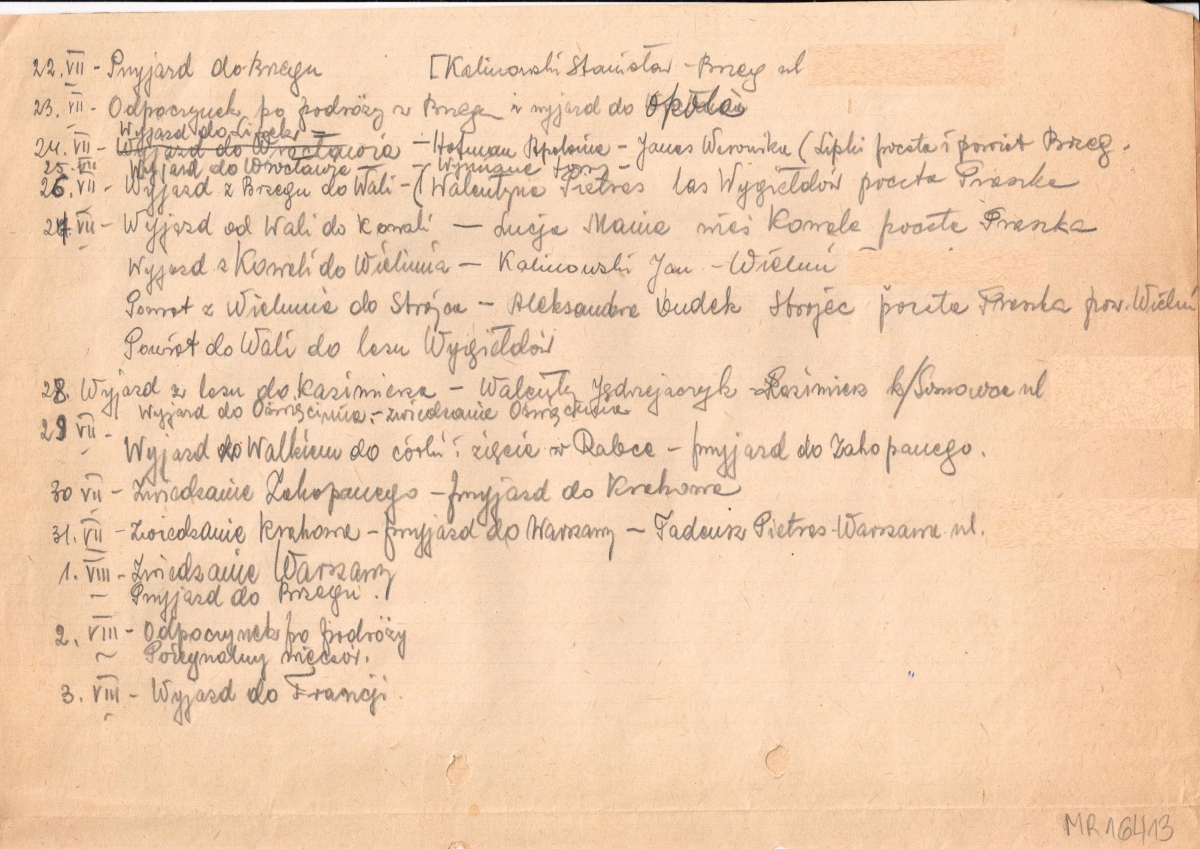 22. VII - Przyjazd do Brzegu [Kalinowski Stanisław - Brzeg ul
23. VII - Odpoczynek po podróży w Brzegu i wyjazd do Opola
Wyjazd do Lipek
24. VII - Wyjazd do Wrocławia - Hofman Apolonia - Janas Weronika (Lipki poczta i powiat Brzeg.
25. VII Wyjazd do Wrocławia - Wymiana
26. VII - Wyjazd z Brzegu do Wali - (Walentyna Pietras las Wygiełdów poczta Praszka
27 VII - Wyjazd od Wali do Kowali - Łucja Mania wieś Kowale poczta Praszka
Wyjazd z Kowali do Wielunia - Kalinowski Jan - Wieluń
Powrot z Wielunia do Strójca - Aleksandra Dudek Strojec poczta Praszka pow. Wieluń
Powrót do Wali do lasu Wygiełdów
28. Wyjazd z lasu do Kazimierza - Walenty Jędrzejaczyk - Kazimierz k/Sosnowca ul
Wyjazd do Oświęcimia - zwiedzanie Oświęcimia
29 VII - Wyjazd z Walkiem do córki i zięcia w Rabce - przyjazd do Zakopanego.
30 VII - Zwiedzanie Zakopanego - przyjazd do Krakowa
31. VII - Zwiedzanie Krakowa - przyjazd do Warszawy - Tadeusz Pietras - Warszawa ul.
1. VIII - Zwiedzanie Warszawy
- Przyjazd do Brzegu.
2. VIII - Odpoczynek po podróży
~ Pożegnalny wieczór.
3. VIII - Wyjazd do Francji
MR16413